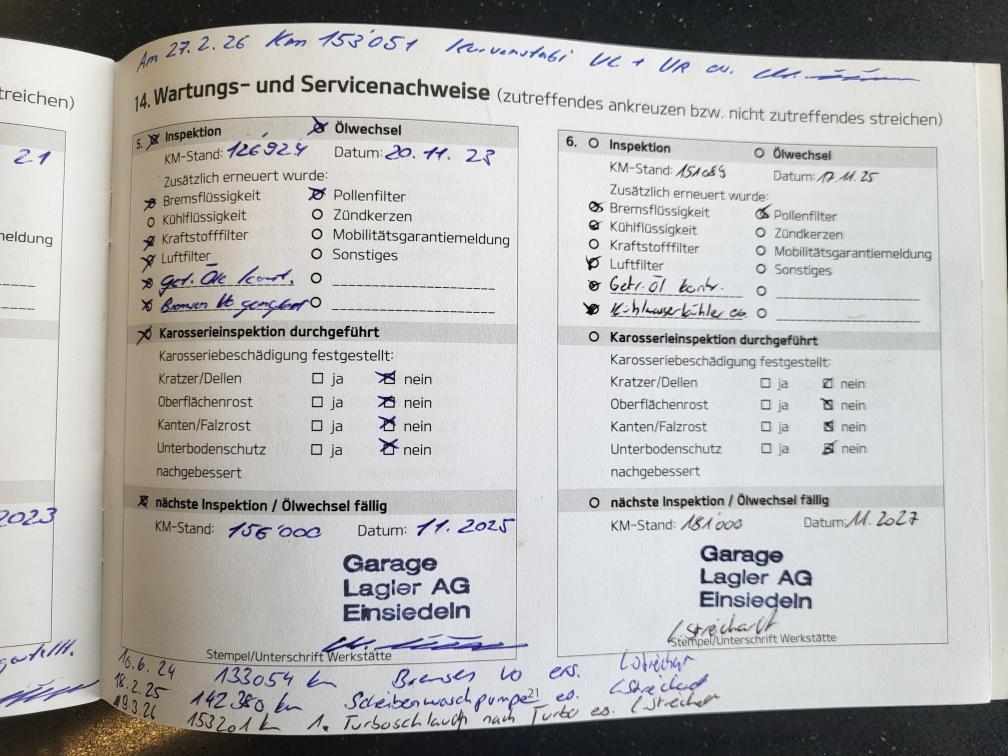 Am 27.2.26 Km 153'051 Kurvenstabi VL + VR ev.
14. Wartungs- und Servicenachweise (zutreffendes ankreuzen bzw. nicht zutreffendes streichen)
treichen)
21
neldung
2023
5. Inspektion Ölwechsel
KM-Stand: 126'924 Datum: 20.11.23
Zusätzlich erneuert wurde:
Bremsflüssigkeit Pollenfilter
Kühlflüssigkeit Zündkerzen
Kraftstofffilter Mobilitätsgarantiemeldung
Luftfilter Sonstiges
Get. Öle kontr.
Bremsen
Karosserieinspektion durchgeführt
Karosseriebeschädigung festgestellt:
Kratzer/Dellen ja nein
Oberflächenrost ja nein
Kanten/Falzrost ja nein
Unterbodenschutz ja nein
nachgebessert
nächste Inspektion / Ölwechsel fällig
KM-Stand: 156'000 Datum: 11.2025
Garage
Lagler AG
Einsiedeln
Stempel/Unterschrift Werkstätte
6. Inspektion Ölwechsel
KM-Stand: Datum: 17.11.25
Zusätzlich erneuert wurde:
Bremsflüssigkeit Pollenfilter
Kühlflüssigkeit Zündkerzen
Kraftstofffilter Mobilitätsgarantiemeldung
Luftfilter Sonstiges
Getr. Öl kontr.
Kühlwasserkühler es.
Karosserieinspektion durchgeführt
Karosseriebeschädigung festgestellt:
Kratzer/Dellen ja nein
Oberflächenrost ja nein
Kanten/Falzrost ja nein
Unterbodenschutz ja nein
nachgebessert
nächste Inspektion / Ölwechsel fällig
KM-Stand: 181'000 Datum: 11.2027
Garage
Lagler AG
Einsiedeln
Stempel/Unterschrift Werkstätte
16.6.24 133054 km Bremsen vo ers.
18.2.25 142380 km Scheibenwaschpumpe es.
21
19.3.26 153201 km 1. Turboschlauch nach Turbo es.